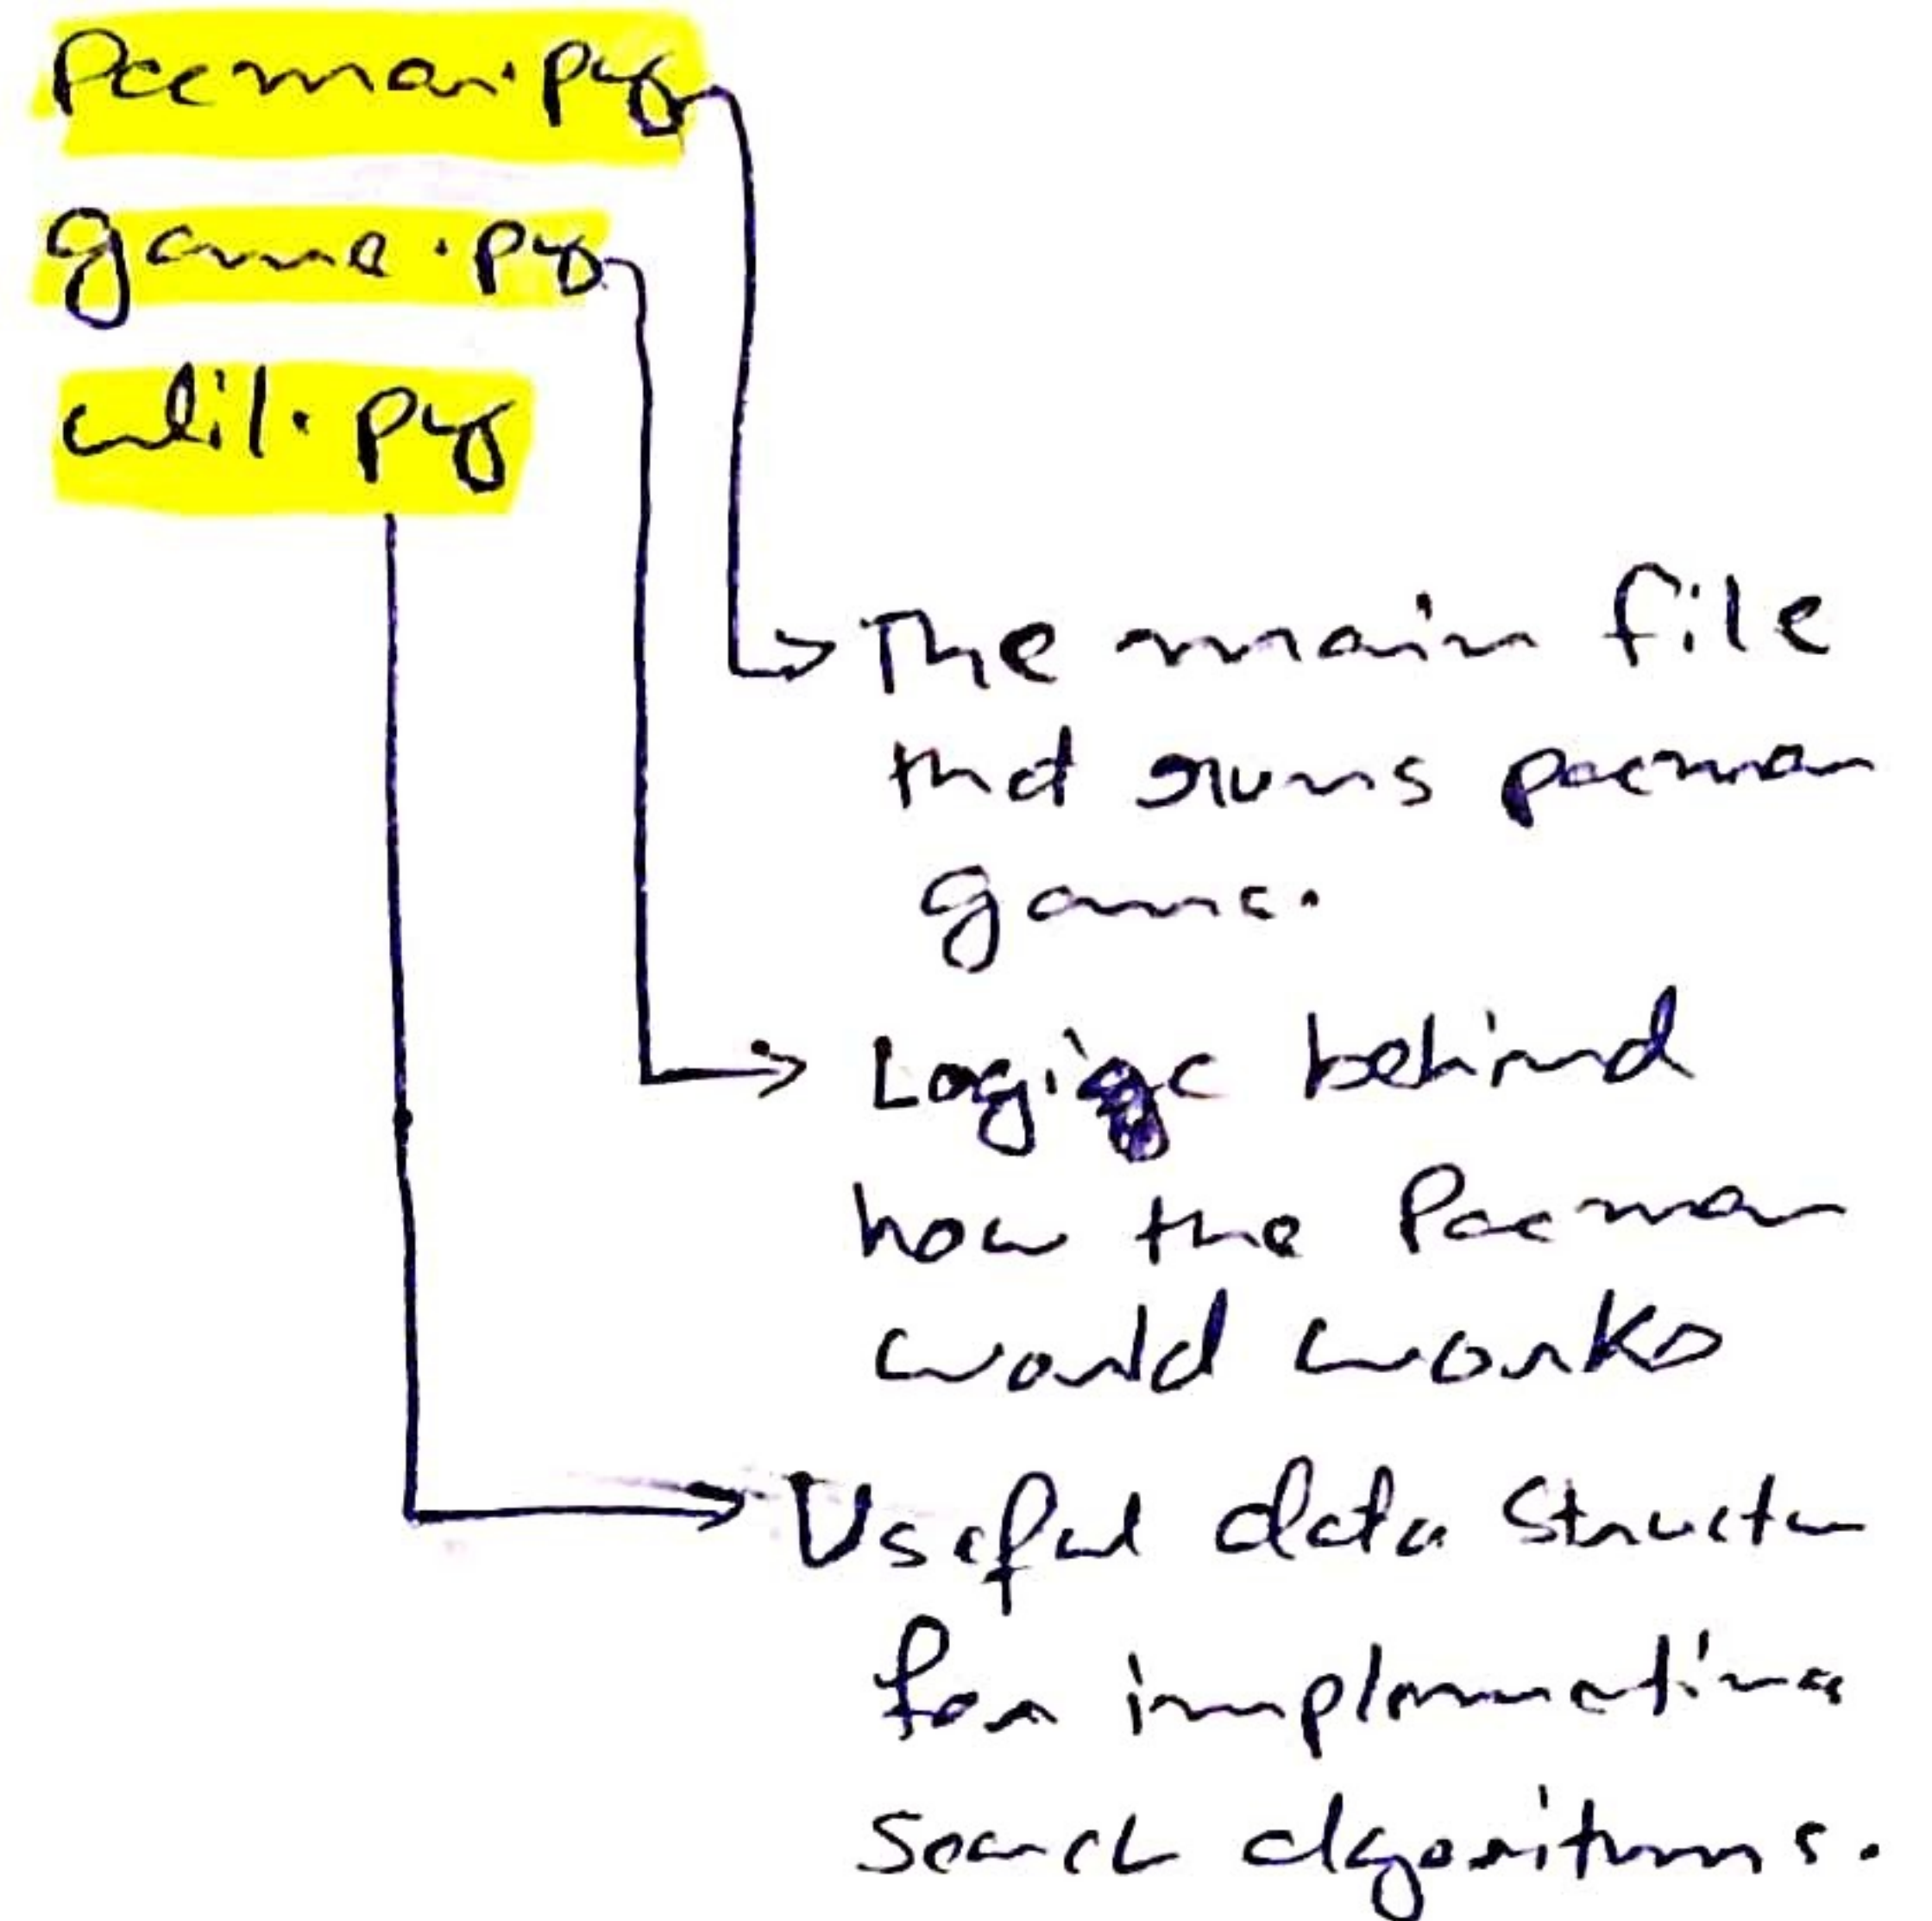 Pacman.py
game.py
util.py
The main file
that runs pacman
game.
Logic behind
how the Pacman
would works
Useful data Structu
for implementing
search algorithms.